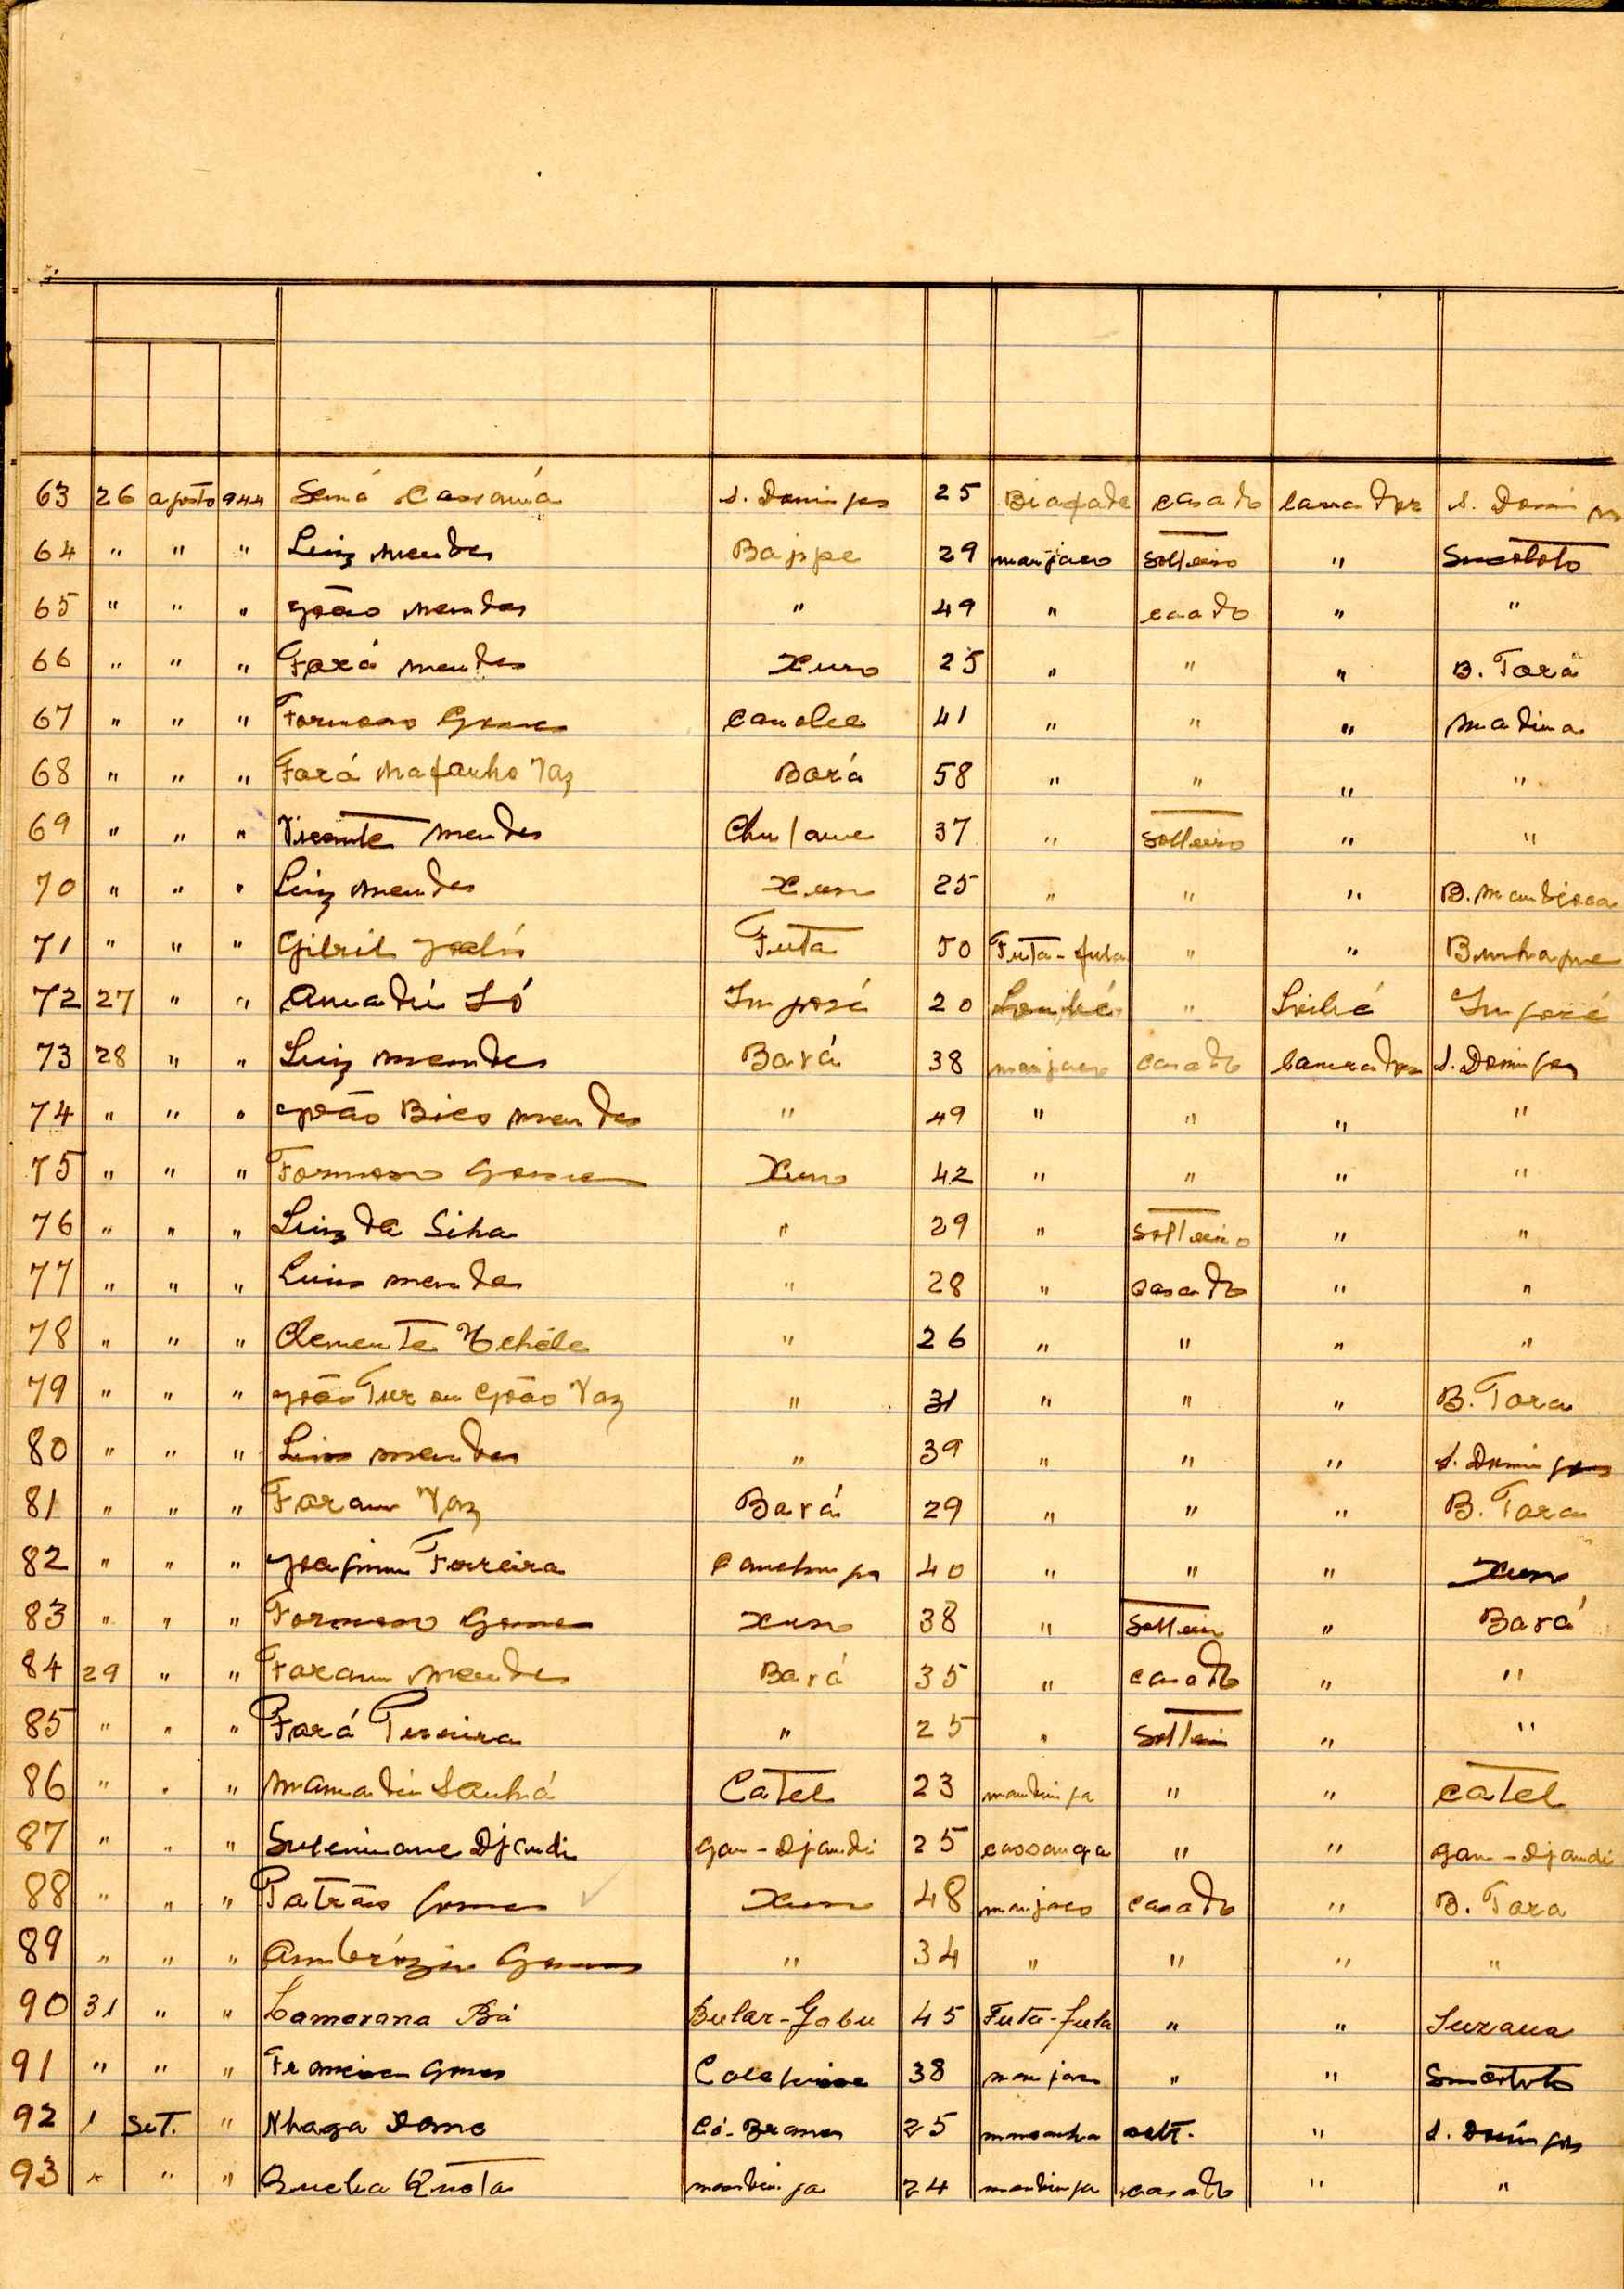 63 26 agosto 944 Semá Cassamá S. Domingos 25 Biafada casado lavrador S. Domingos
64 " " " Luiz Mendes Bajope 29 manjaco solteiro " Sucototo
65 " " " João Mendes " 49 " casado " "
66 " " " Fará Mendes Xuro 25 " " " B. Tora
67 " " " Formoso Gomes Canobe 41 " " " Madina
68 " " " Fará Mafanho Vaz Bará 58 " " " "
69 " " " Vicente Mendes Chulame 37 " solteiro " "
70 " " " Luiz Mendes Xuro 25 " " " B. Mandioca
71 " " " Gibril Jaló Futa 50 Futa-fula " "
72 27 " " Amadú Só Ingoré 20 " Ingoré
73 28 " " Luiz Mendes Bará 38 manjaco casado lavrador S. Domingos
74 " " " João Bico Mendes " 49 " " " "
75 " " " Formoso Gomes Xuro 42 " " " "
76 " " " Luiz da Silva " 29 " solteiro " "
77 " " " Luis Mendes " 28 " casado " "
78 " " " Clemente " 26 " " " "
79 " " " João Tur ou João Vaz " 31 " " " B. Tora
80 " " " Luis Mendes " 39 " " " S. Domingos
81 " " " Faram Vaz Bará 29 " " " B. Tora
82 " " " Joaquim Ferreira Canchungo 40 " " " Xuro
83 " " " Formoso Gomes Xuro 38 " solteiro " Bará
84 29 " " Faram Mendes Bará 35 " casado " "
85 " " " Fará Pereira " 25 " solteiro " "
86 " " " Mamadú Sanhá Catel 23 mandinga " " Catel
87 " " " Suleimane Djandi Gan-Djandi 25 cassanga " " Gan-Djandi
88 " " " Patrão Gomes Xuro 48 manjaco casado " B. Tora
89 " " " Ambrózio Gomes " 34 " " " "
90 31 " " Lamarana Bá Bular-Gabu 45 Futa-fula " " Suzana
91 " " " Francisco Gomes Calequisse 38 manjaco " " Sucototo
92 1 Set. " Nhaga Dama Có-Brama 25 mansonha solt. " S. Domingos
93 " " " Queba Quota mandinga 24 mandinga casado " "